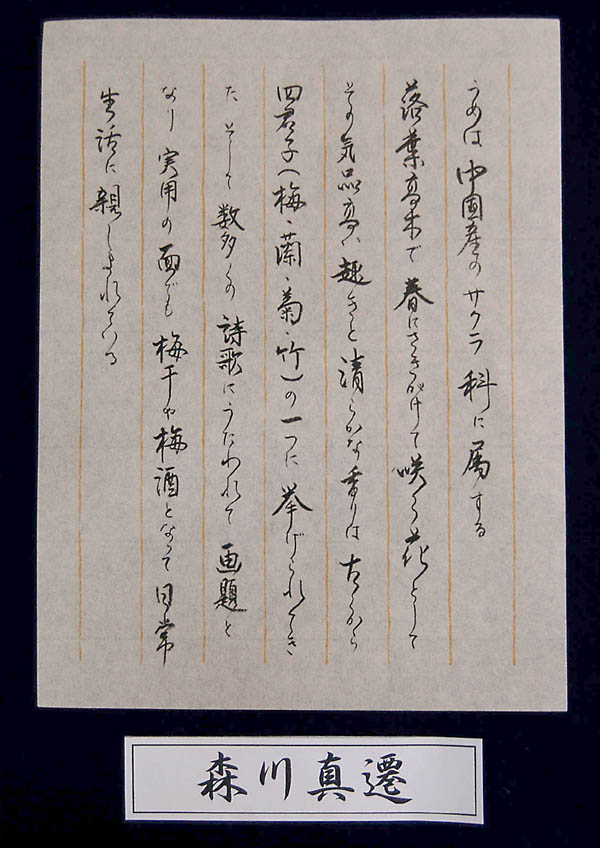 うめは 中国産の サクラ 科に 属する
落葉高木で 春にさきがけて 咲く花として
その気品高い 趣きと 清らかな香りは 古くから
四君子(梅、蘭、菊、竹)の一つに 挙げられてき
た そして 数多くの 詩歌にうたわれて 画題と
なり 実用の 面でも 梅干や 梅酒となって 日常
生活に 親しまれている
森川真遷